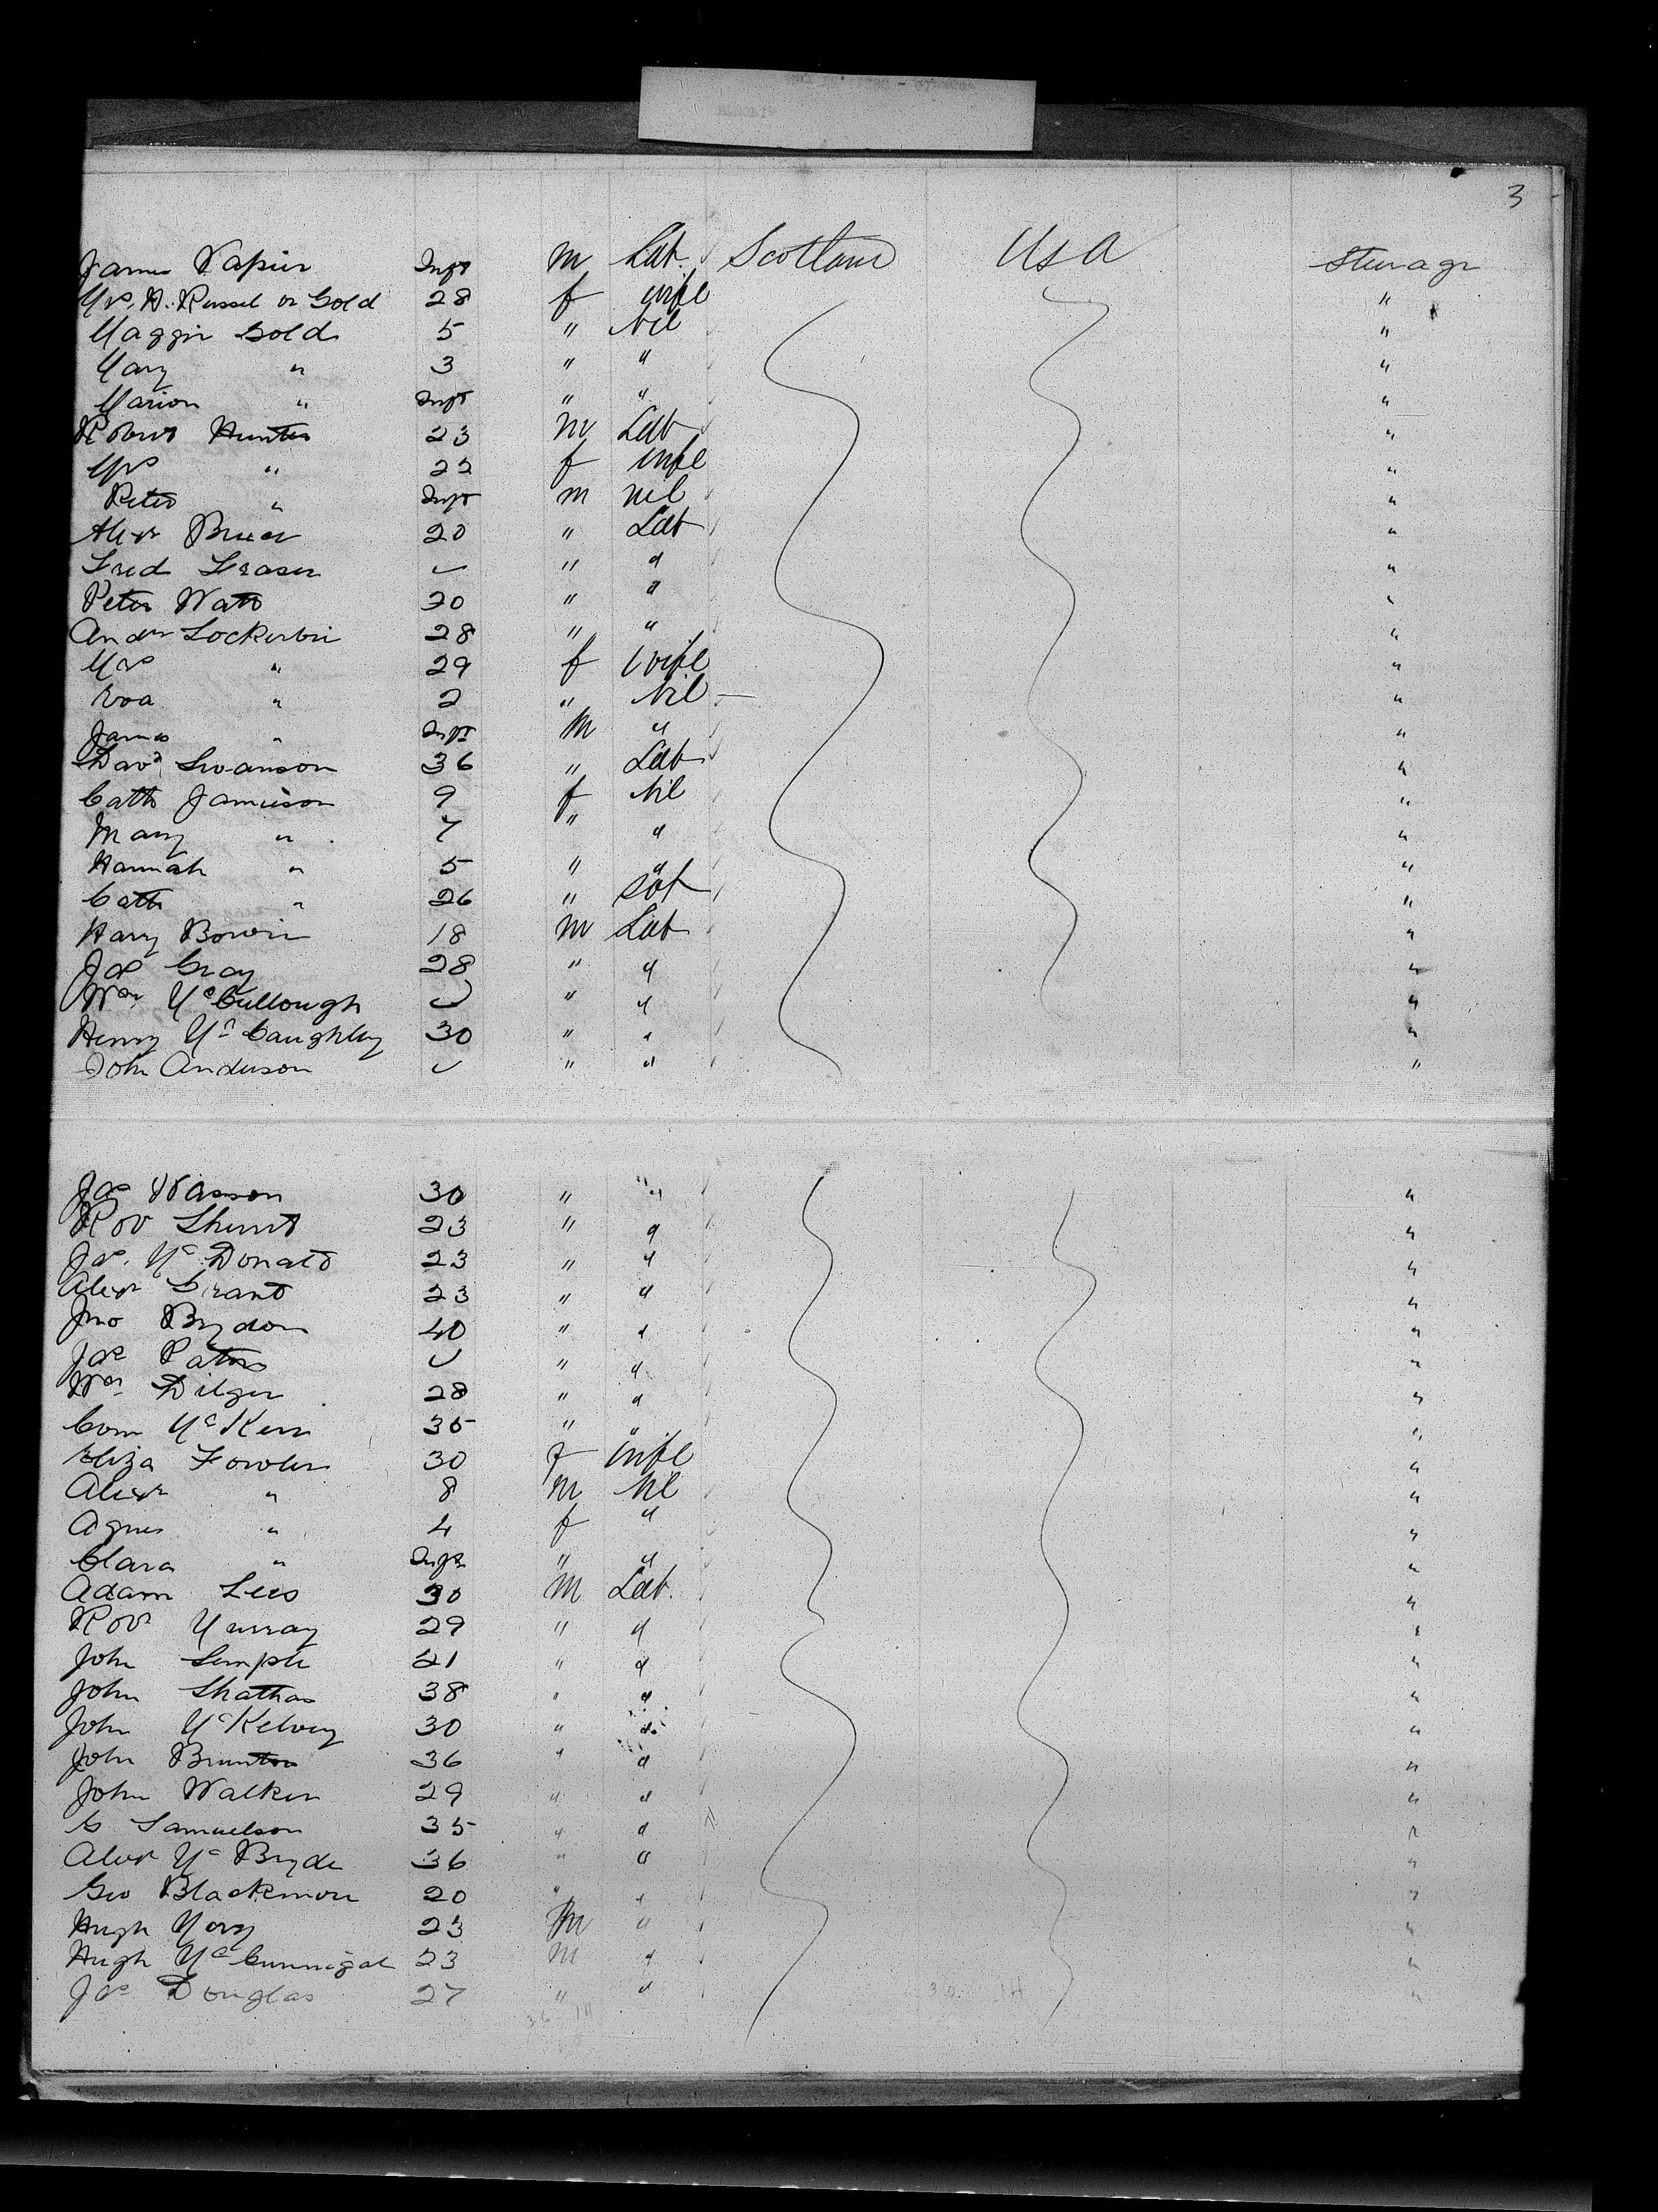 3
James Napier Inft m Lab. Scotland USA Steerage
Mrs. H. Russel or Gold 28 f wife "
Maggie Gold 5 " Nil "
Mary " 3 " " "
Marion " Inft " " "
Robert Hunter 23 m Lab "
Mrs " 22 f wife "
Peter " Inft m nil "
Alexr Bruce 20 " Lab "
Fred Fraser ✓ " " "
Peter Watt 20 " " "
Andw Lockerbie 28 " " "
Mrs " 29 f wife "
" 2 " Nil "
James " Inft M " "
Davd Swanson 36 " Lab "
Cath Jamieson 9 f Nil "
Mary " 7 " " "
Hannah " 5 " " "
Cath " 26 " "
Harry Bowie 18 m Lab "
Jas Gray 28 " " "
Wm McCullough ✓ " " "
Henry McCaughley 30 " " "
John Anderson ✓ " " "
Jas Wasson 30 " " "
Robt 23 " " "
Jas. McDonald 23 " " "
Alexr Grant 23 " " "
Jno Brydon 40 " " "
Jas Paton ✓ " " "
Wm Dilger 28 " " "
McKerr 35 " " "
Eliza Fowler 30 f wife "
Alexr " 8 m Nil "
Agnes " 4 f " "
Clara " Inft " " "
Adam Lees 30 M Lab. "
Robt Murray 29 " " "
John Semple 21 " " "
John 38 " " "
John McKelvey 30 " " "
John Brunton 36 " " "
John Walker 29 " " "
G Samuelson 35 " " "
Alexr McBryde 36 " " "
Geo Blackmore 20 " " "
Hugh 23 M " "
Hugh McCunnigal 23 m " "
Jas Douglas 27 " " "